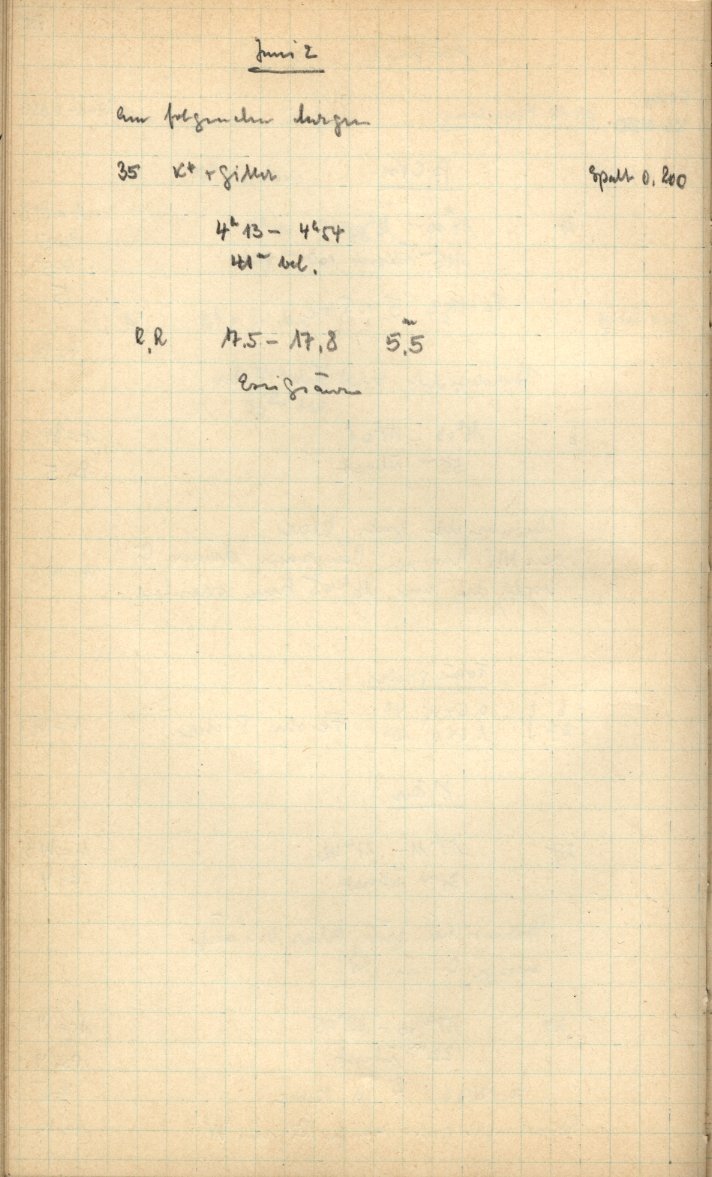 Juni 2
Am folgenden Morgen
35 K* + Gitter Spalt 0,200
4h 13 – 4h 54
41m bel.
R,R 17,5 – 17,8 5,5m
Essigsäure